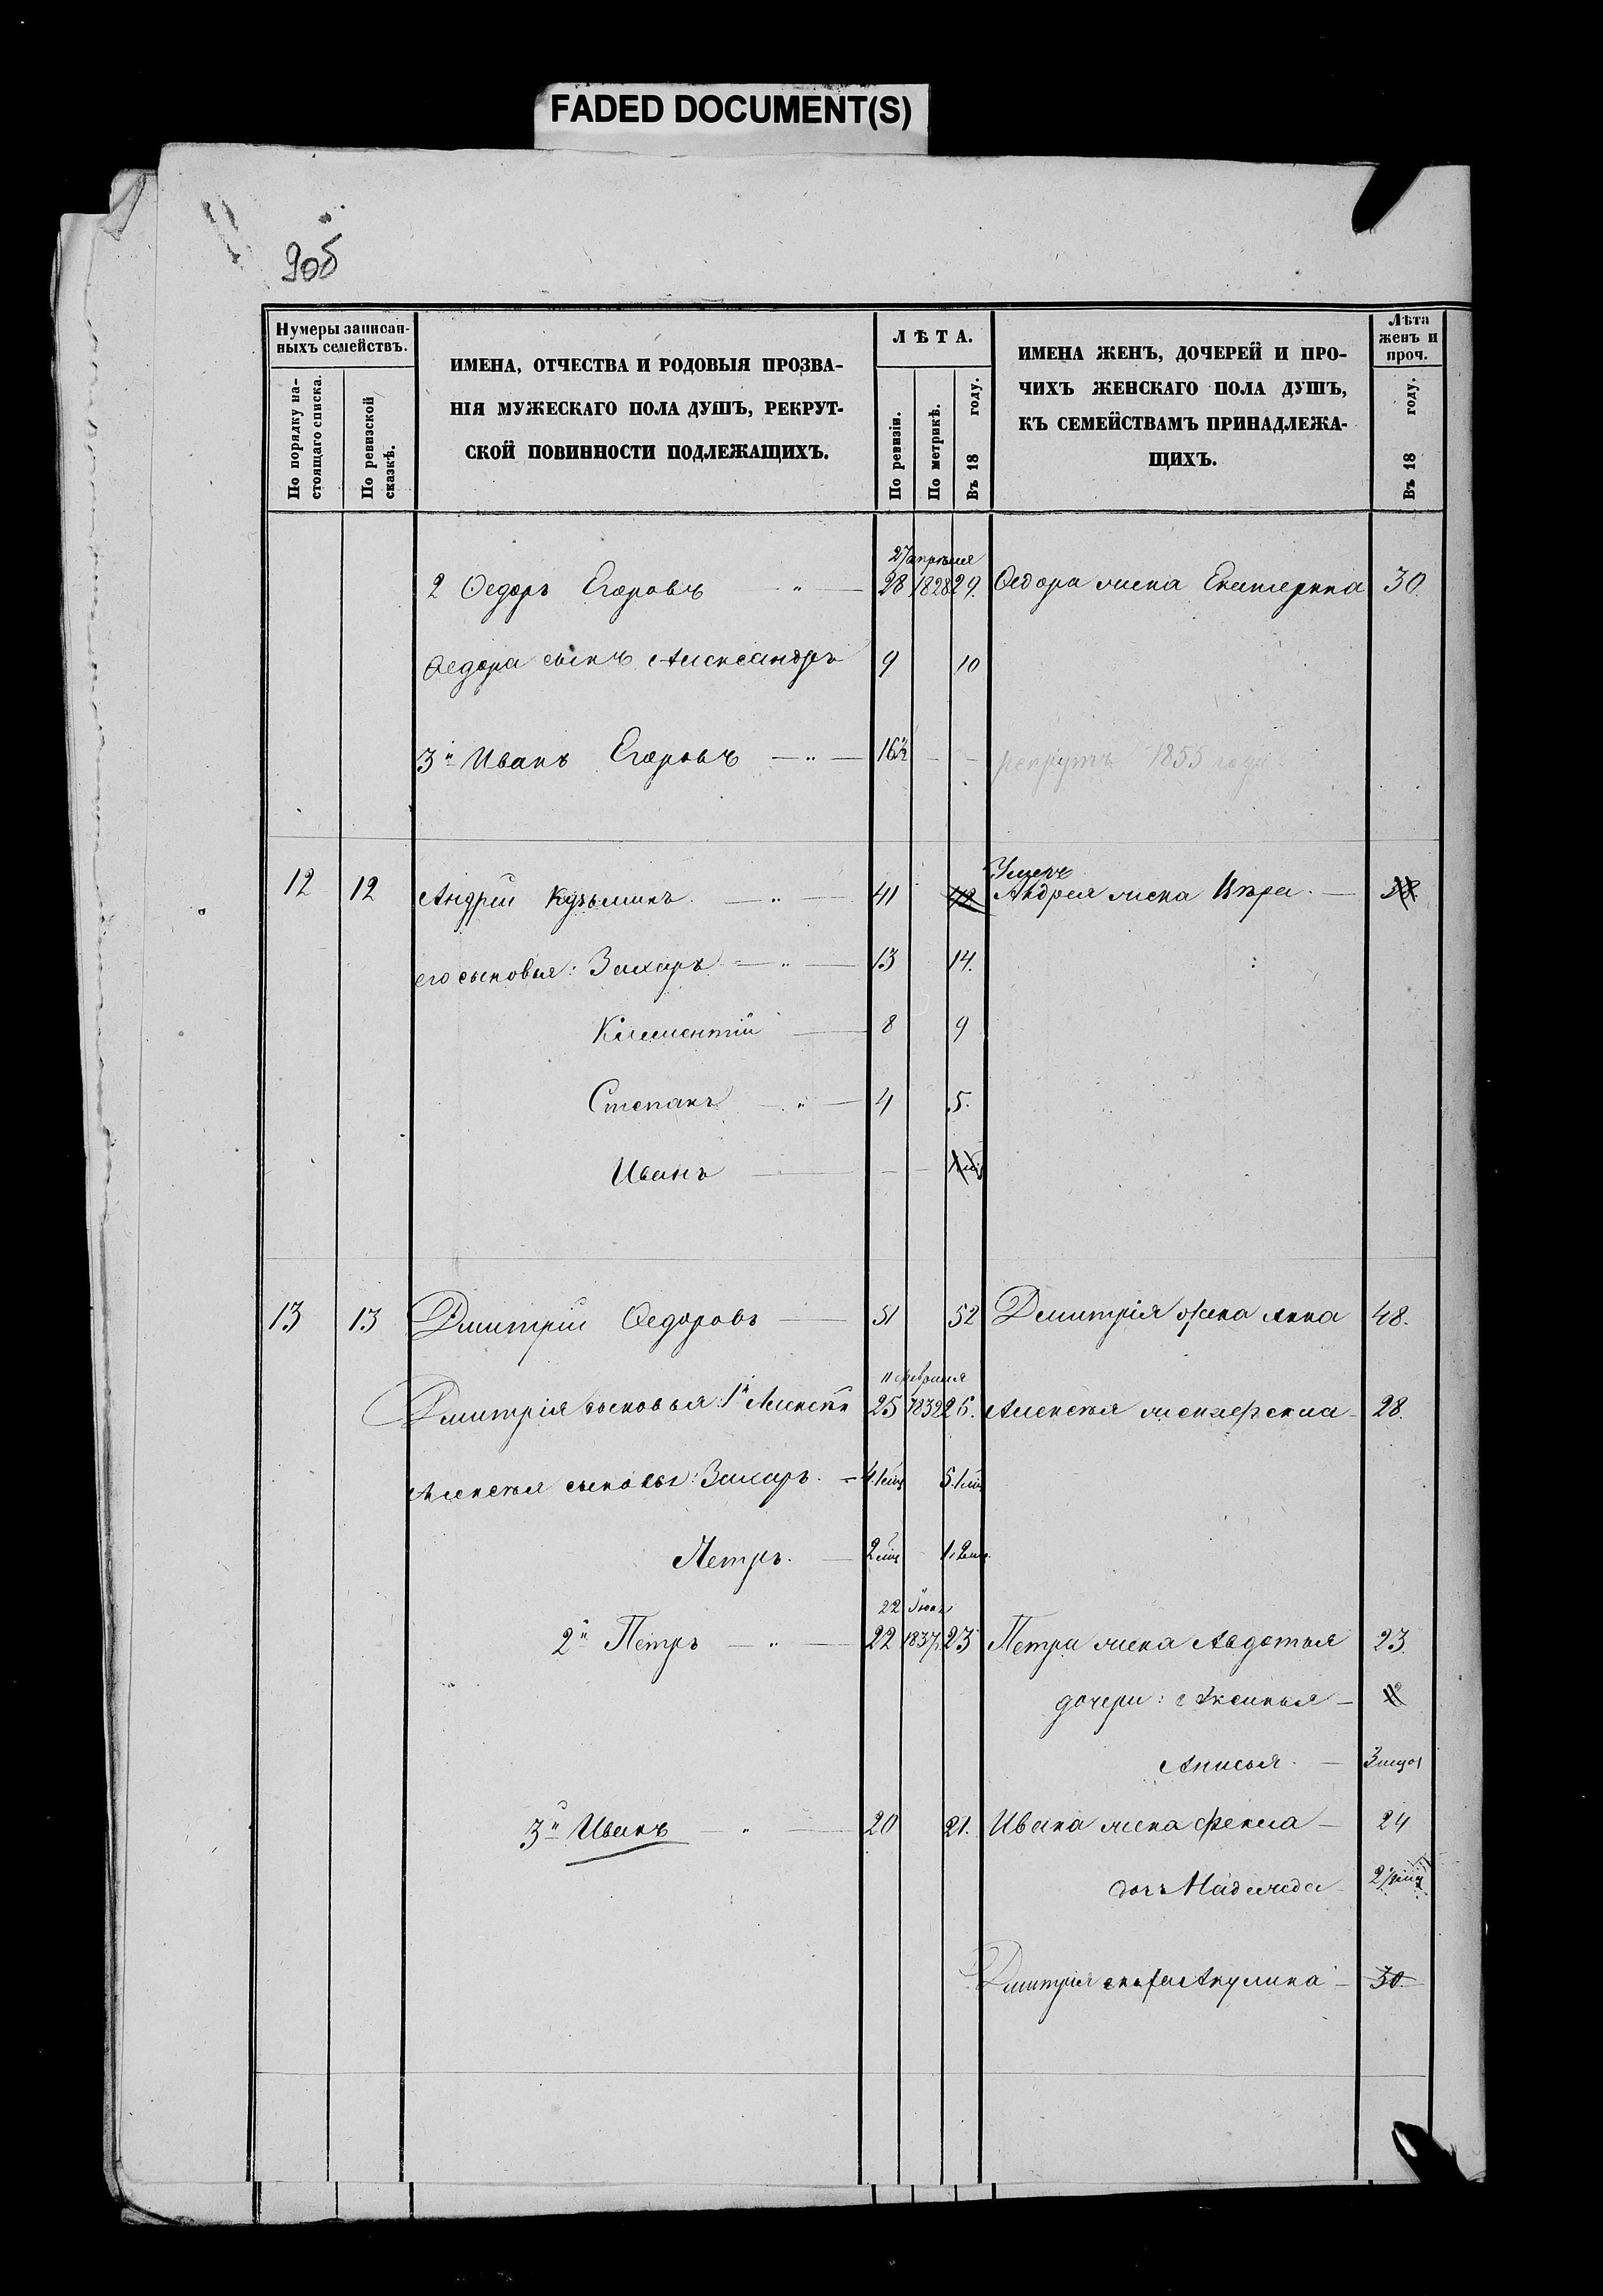 FADED DOCUMENT(S)
9об
Нумеры записан-
ныхъ семействъ.
По порядку на-
стоящаго списка.
По ревизской
сказкѣ.
ИМЕНА, ОТЧЕСТВА И РОДОВЫЯ ПРОЗВА-
НІЯ МУЖЕСКАГО ПОЛА ДУШЪ, РЕКРУТ-
СКОЙ ПОВИННОСТИ ПОДЛЕЖАЩИХЪ.
ЛѢТА.
По ревизіи.
По метрикѣ.
Въ 18 году.
ИМЕНА ЖЕНЪ, ДОЧЕРЕЙ И ПРО-
ЧИХЪ ЖЕНСКАГО ПОЛА ДУШЪ,
КЪ СЕМЕЙСТВАМЪ ПРИНАДЛЕЖА-
ЩИХЪ.
Лѣта
женъ и
проч.
Въ 18 году.
27 апрѣля
2 Ѳедоръ Егоровъ — " — 28 1828 29. Ѳедора жена Екатерина 30.
Ѳедора сынъ Александръ 9 10
3й Иванъ Егоровъ — " — 16½ — — рекрутъ 1855 года
Умеръ
12 12 Андрей Кузьминъ — " — 41 42 Андрея жена Вѣра. — 38.
его сыновья: Захаръ — " — 13 14.
Климентій — 8 9
Степанъ — " — 4 5.
Иванъ — — —
13 13 Дмитрій Ѳедоровъ — 51 52 Дмитрія жена Анна 48.
11 февраля
Дмитрія сыновья: 1й Алексѣй 25 1832 26. Алексѣя жена 28.
Алексѣя сыновья: Захаръ. —
Петръ. — 2 мц
22 Іюня
2й Петръ — " — 22 1837. 23 Петра жена Авдотья 23.
дочери: Аксинья —
Анисья. —
3й Иванъ — " — 20 21. Ивана жена Фекла — 24
дочь Надежда
Дмитрія Акулина — 30.